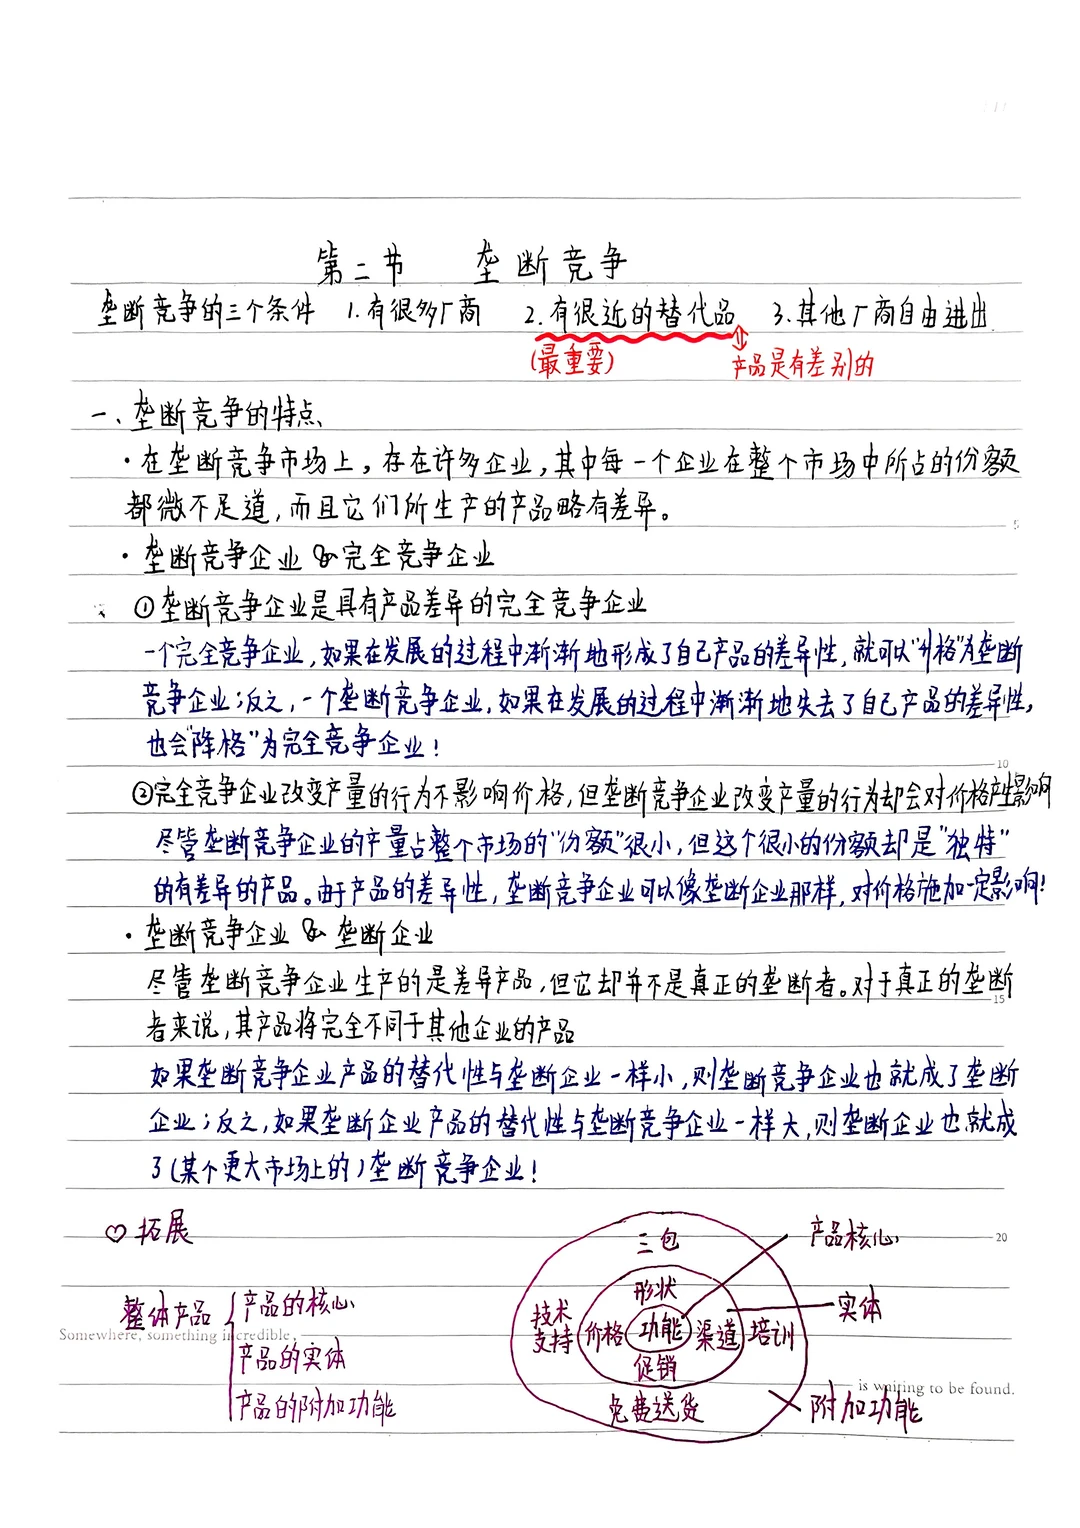 第二节 垄断竞争
垄断竞争的三个条件 1.有很多厂商 2.有很近的替代品 3.其他厂商自由进出
(最重要) 产品是有差别的
一、垄断竞争的特点
·在垄断竞争市场上，存在许多企业，其中每一个企业在整个市场中所占的份额
都微不足道，而且它们所生产的产品略有差异。
·垄断竞争企业 & 完全竞争企业
①垄断竞争企业是具有产品差异的完全竞争企业
一个完全竞争企业，如果在发展的过程中渐渐地形成了自己产品的差异性，就可以"升格"为垄断
竞争企业；反之，一个垄断竞争企业，如果在发展的过程中渐渐地失去了自己产品的差异性，
也会"降格"为完全竞争企业！
②完全竞争企业改变产量的行为不影响价格，但垄断竞争企业改变产量的行为却会对价格产生影响
尽管垄断竞争企业的产量占整个市场的"份额"很小，但这个很小的份额却是"独特"
的有差异的产品。由于产品的差异性，垄断竞争企业可以像垄断企业那样，对价格施加一定影响！
·垄断竞争企业 & 垄断企业
尽管垄断竞争企业生产的是差异产品，但它却并不是真正的垄断者。对于真正的垄断
者来说，其产品将完全不同于其他企业的产品
如果垄断竞争企业产品的替代性与垄断企业一样小，则垄断竞争企业也就成了垄断
企业；反之，如果垄断企业产品的替代性与垄断竞争企业一样大，则垄断企业也就成
了(某个更大市场上的)垄断竞争企业！
♡拓展
整体产品
产品的核心
产品的实体
产品的附加功能
三包
形状
技术
支持
价格
功能
渠道
培训
促销
免费送货
产品核心
实体
附加功能
Somewhere, something incredible,
is waiting to be found.
5
10
15
20